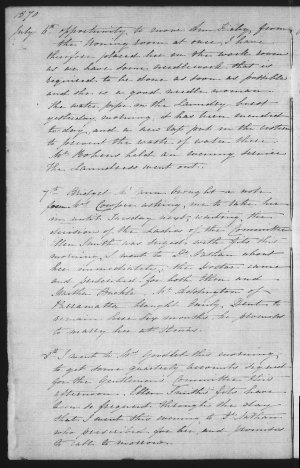 1870
July 6th opportunity to move Ann Bixby, from
the Ironing room at once, I have
therefore placed her in the work room
as we have some needlework that is
required to be done as soon as possible
and she is a good needle woman.
The water pipe in the Laundry burst
yesterday morning, it has been mended
to day, and a new tap put in the
to prevent the waste of water there.
Mr held an evening service
the Laundresses went out.
7th Bridget brought a note
from Mrs Cooper asking me to take her
in until Tuesday next; awaiting the
decision of the Ladies of the Committee
Ellen Smith was seized with fits this
morning, I went to Dr about
her immediately; the Doctor came
and prescribed for both them and
Martha Mr of
Parramatta brought Emily to
remain here six months he promises
to marry her at
8th I went to Mrs Goodlet this morning
to get some quarterly accounts signed
for the Gentlemen's Committee this
afternoon. Ellen Smith's fits have
been so frequent through the day
that I went this evening to Dr
who prescribed for her and promises
to call to morrow.